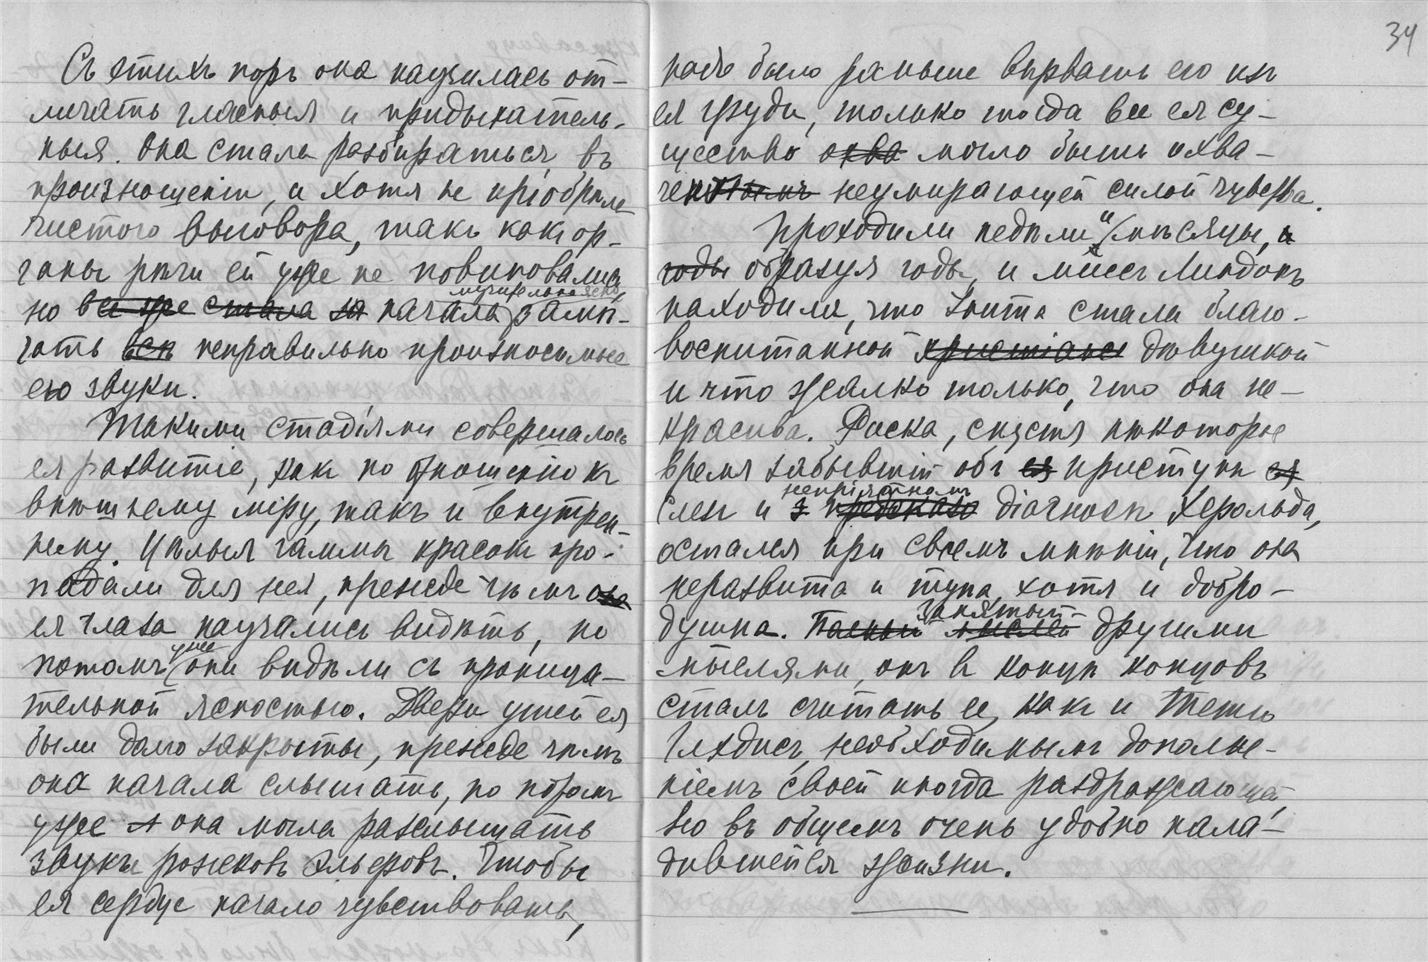 Съ этихъ поръ она научилась от-
личать гласныя и придыхатель-
ныя. Она стала разбираться въ
произношеніи, и хотя не пріобрѣла
чистого выговора, такъ какъ ор-
ганы рѣчи ей уже не повиновались,
мучительно ясно
но все же стала за начала замѣ-
чать всѣ неправильно произносимые
ею звуки.
Такими стадіями совершалось
ея развитіе, какъ по отношенію къ
внѣшнему міру, такъ и внутрен-
нему. Цѣлыя гаммы красокъ про-
падали для нея, прежде чѣмъ она
ея глаза научались видѣть, но
потомъ уже они видѣли съ проница-
тельной ясностью. Двери ушей ея
были долго закрыты, прежде чѣмъ
она начала слышать, но потомъ
уже она могла разслышать
звуки рожковъ эльфовъ. Чтобы
ея сердце начало чувствовать,
34
надо было раньше вырвать его изъ
ея груди, только тогда все ея су-
щество могло быть охва-
чено неумирающей силой чувства.
Проходили недѣли и мѣсяцы, и
годы образуя годы, и миссъ Линдонъ
находила, что Анита стала благо-
воспитанной христіанс дѣвушкой
и что жалко только, что она не-
красива. Риска, спустя нѣкоторое
время забывшій объ ея приступѣ ея
непріятномъ
слезъ и діагнозѣ Херольда,
остался при своемъ мнѣніи, что она
неразвита и тупа, хотя и добро-
занятый
душна. Полный мыслей другими
мыслями, онъ въ концѣ концовъ
сталъ считать ее, какъ и Тетю
Глэдисъ, необходимымъ дополне-
ніемъ своей иногда раздражающей,
но въ общемъ очень удобно нала-
дившейся жизни.